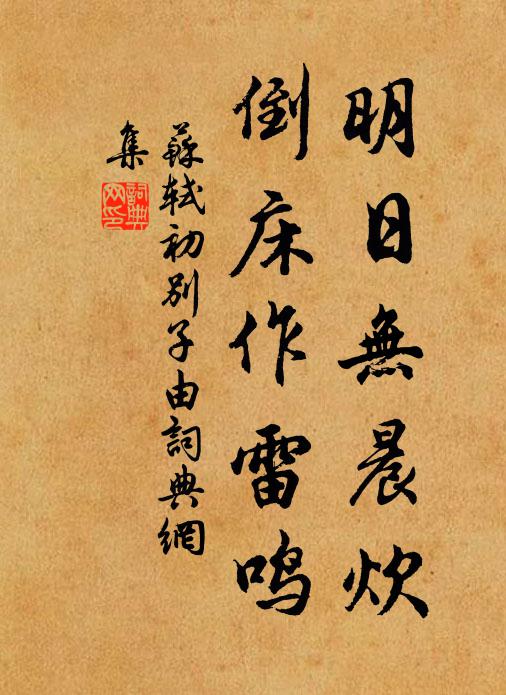 明日無晨炊
倒床作雷鳴
蘇軾初別子由詞典網
集
詞典網印